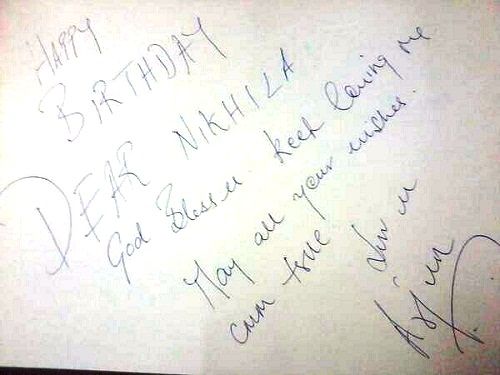 HAPPY
BIRTHDAY
DEAR NIKHILA
God Bless u. keep loving me
May all your wishes.
cum true
luv u
Arjun